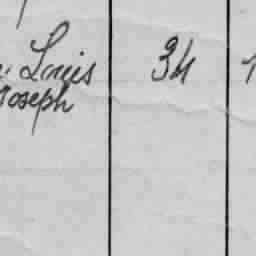 Louis 34
Joseph